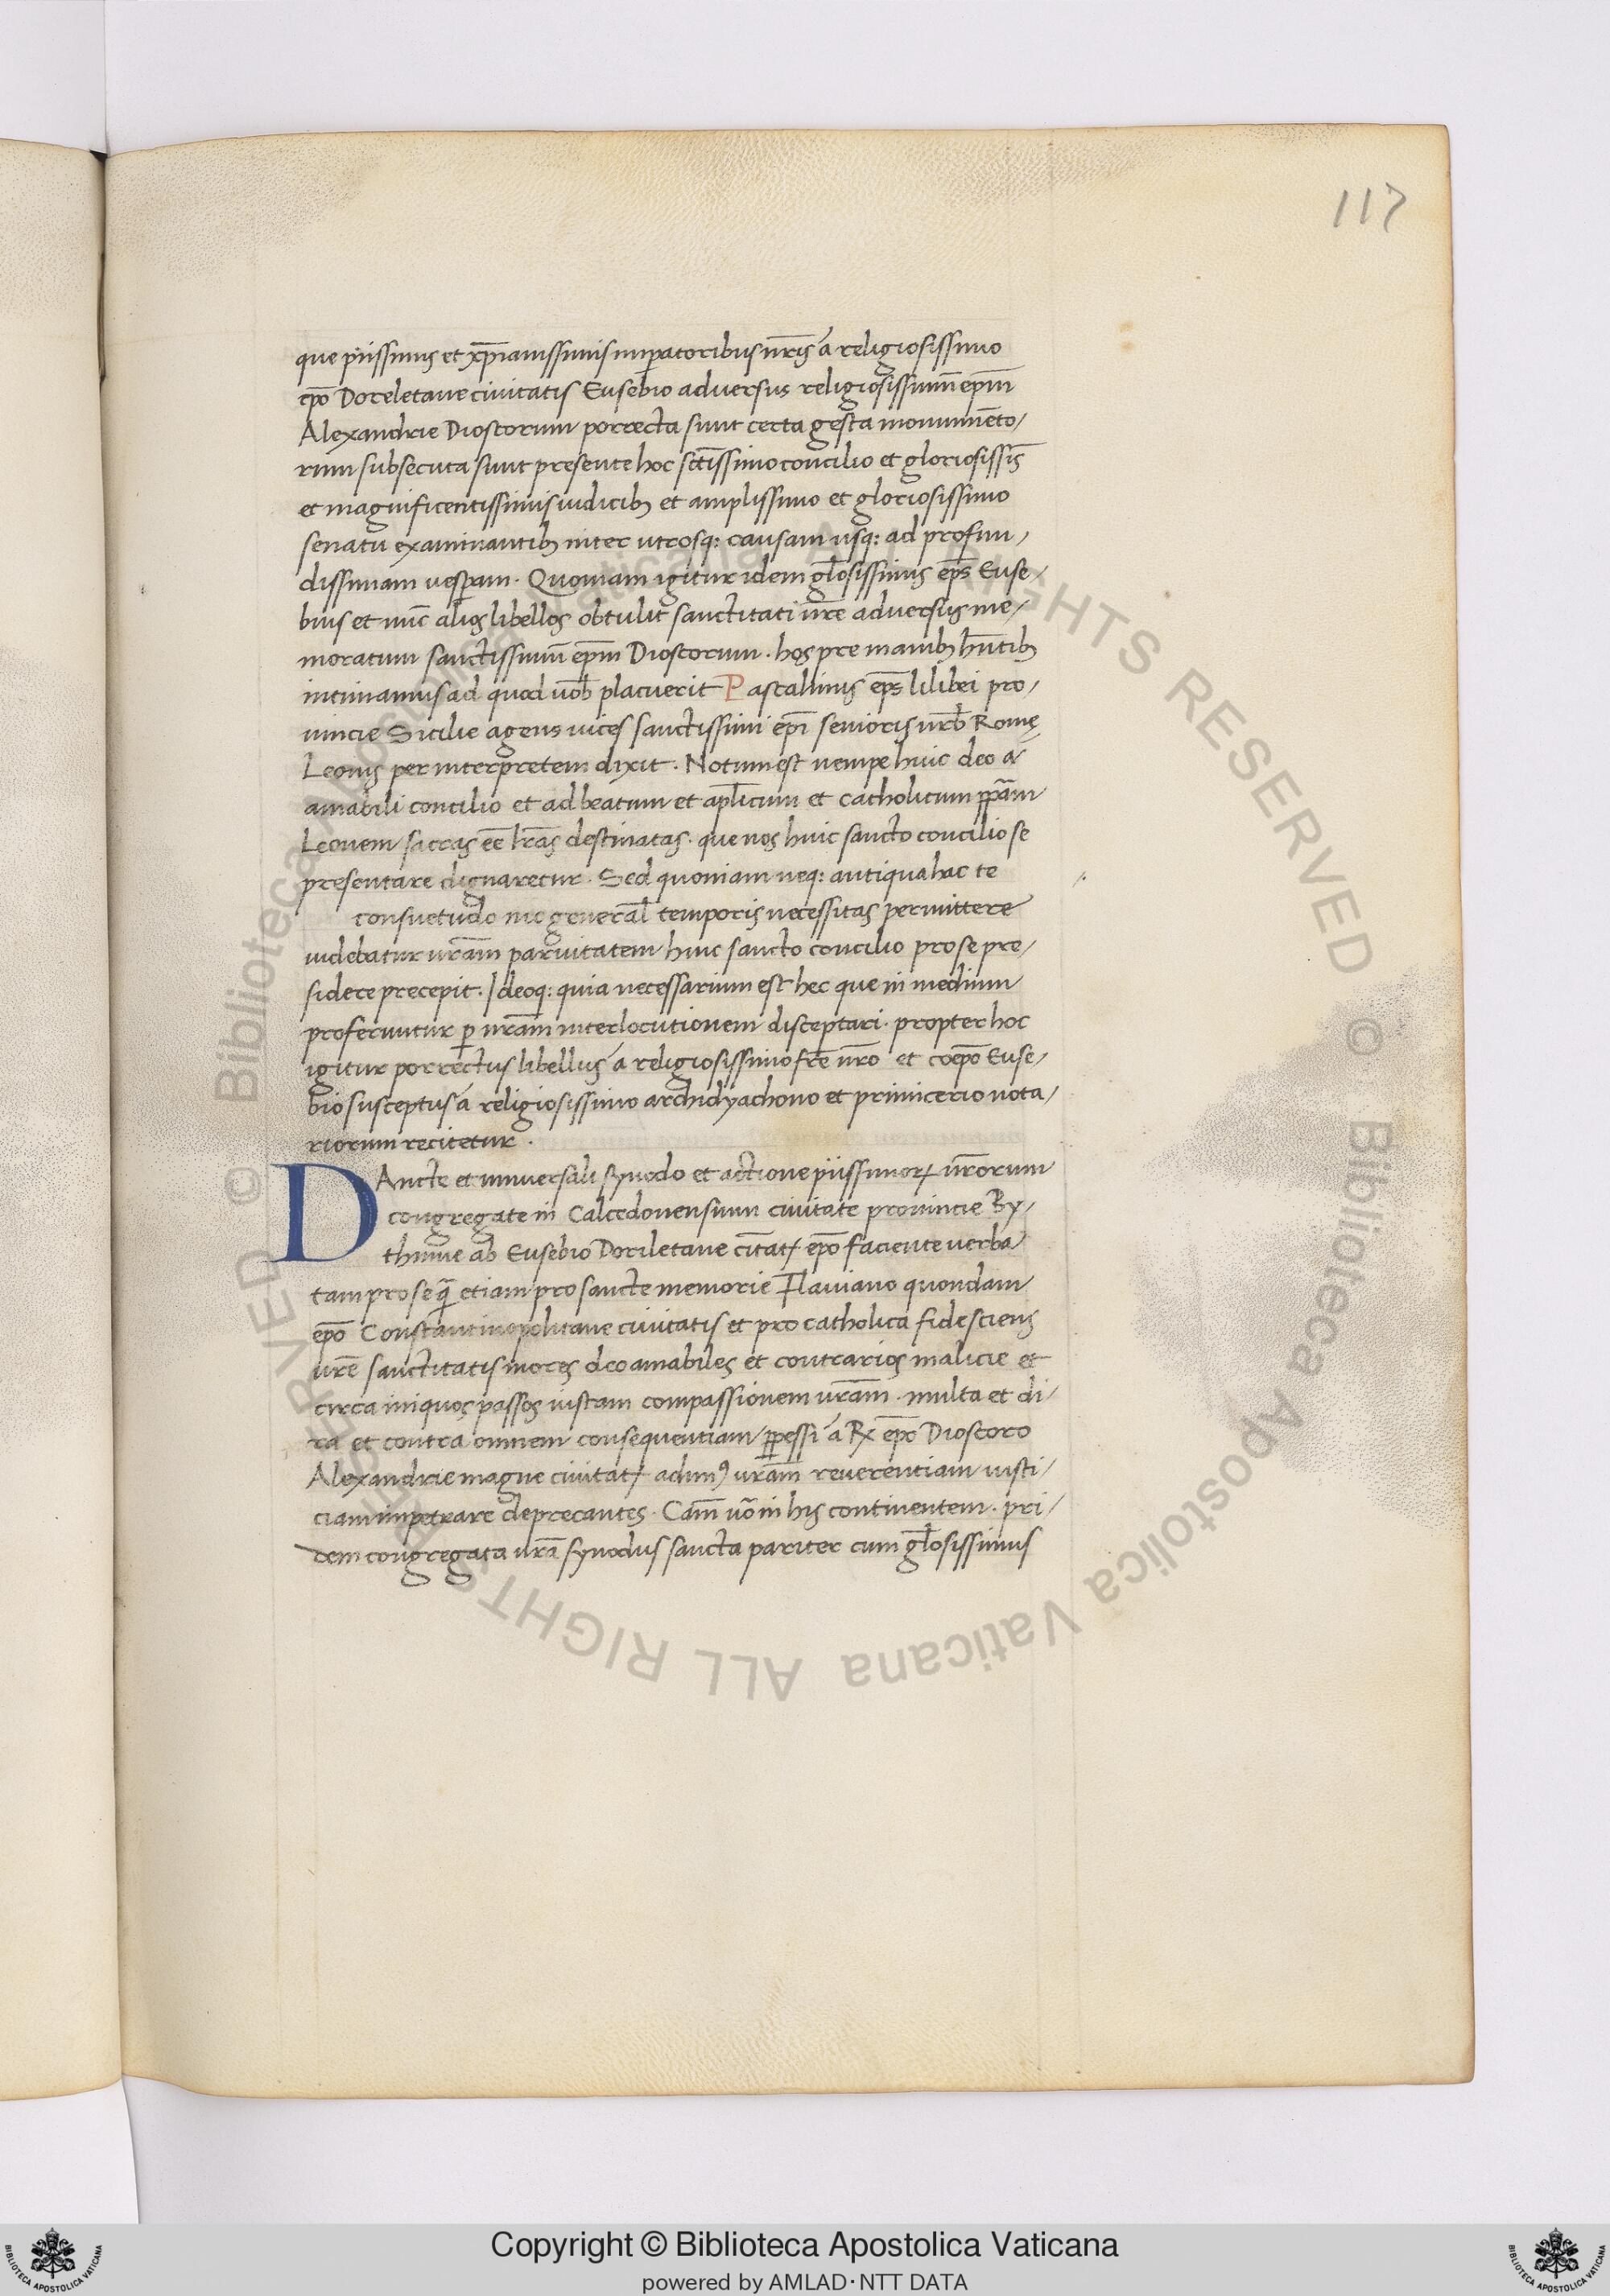 117
que piissimis et xp̄ianissimis imꝑatoribus nr̄is á religiosissimo
ep̄o Doreletane ciuitatis Eusebio adversus religiosissimū ep̄m
Alexandrie Dioscorum porrecta sunt certa gesta monumēto/
rum subsecuta sunt presente hoc sctīssimo concilio et gloriosissīs
et magnificentissimis iudicibꝫ et amplissimo et gloriosissimo
senatu examinantibꝫ inter utrosqꝫ causam usqꝫ ad profun/
dissimam uesꝑam. Quoniam igitur idem gl̄osissimus ep̄s Euse/
bius et nūc alios libellos obtulit sanctitati ur̄e adversus me/
moratum sanctissimū ep̄m Dioscorum. hos pre manibꝫ hn̄tibꝫ
intimamus ad quod uob̄ placuerit Pascallinus ep̄s lilibei pro/
uincie Sicilie agens uices sanctissimi ep̄i senioris urb̄ Romę
Leonis per interpretem dixit. Notum est nempe huic deo a/
amabili concilio et ad beatum et apl̄icum et catholicum ꝑpām
Leonem sacras eē lr̄as destinatas. que nos huic sancto concilio se
presentare dignaretur. Sed quoniam neqꝫ antiqua hac te
consuetudo nec general̄ temporis necessitas permittere
uidebatur ur̄am paruitatem huic sancto concilio pro se pre/
sidere precepit. Ideoqꝫ quia necessarium est hec que in medium
proferuntur ꝑ ur̄am interlocutionem disceptari. propter hoc
igitur porrectus libellus á religiosissimo fr̄e nr̄o et coep̄o Euse/
bio susceptus á religiosissimo archidyachono et primicerio nota/
riorum recitetur.
DAncte et uniuersali synodo et actione piissimoꝝ nr̄orum
congregate in Calcedonensium ciuitate prouincie By/
thinie ab Eusebio Doriletane ciītatꝭ ep̄o faciente uerba
tam pro se q̄ etiam pro sancte memorie Flauiano quondam
ep̄o Constantinopolitane ciuitatis et pro catholica fide sciens
ur̄e sanctitatis mores deo amabiles et contrarios malicie et
circa iniquos passos iustam compassionem ur̄am. multa et di/
ra et contra omnem consequentiam ꝑpessi á Rx ep̄o Dioscoro
Alexandrie magne ciuitatꝭ adimꝰ ur̄am reuerentiam iusti/
ciam impetrare deprecantes. Cām uō in his continentem. pri/
dem congregata ur̄a synodus sancta pariter cum gl̄osissimus
Copyright © Biblioteca Apostolica Vaticana
powered by AMLAD·NTT DATA
© Biblioteca Apostolica Vaticana ALL RIGHTS RESERVED
© Biblioteca Apostolica Vaticana ALL RIGHTS RESERVED
BIBLIOTECA APOSTOLICA VATICANA
BIBLIOTECA APOSTOLICA VATICANA